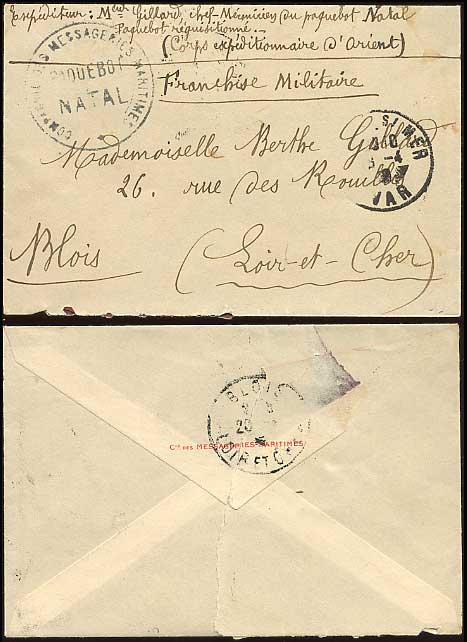 Expéditeur: Meur Gillard, chef-Mécanicien du paquebot Natal
Paquebot réquisitionné...
(Corps expéditionnaire d'Orient)
COMPAGNIE DES MESSAGERIES MARITIMES
PAQUEBOT
NATAL
Franchise Militaire
Mademoiselle Berthe Gillard
S/MER
-4
VAR
26. rue des Rouillis
Blois (Loir-et-Cher)
BLOIS
20
Cie DES MESSAGERIES MARITIMES
LOIR ET CHER